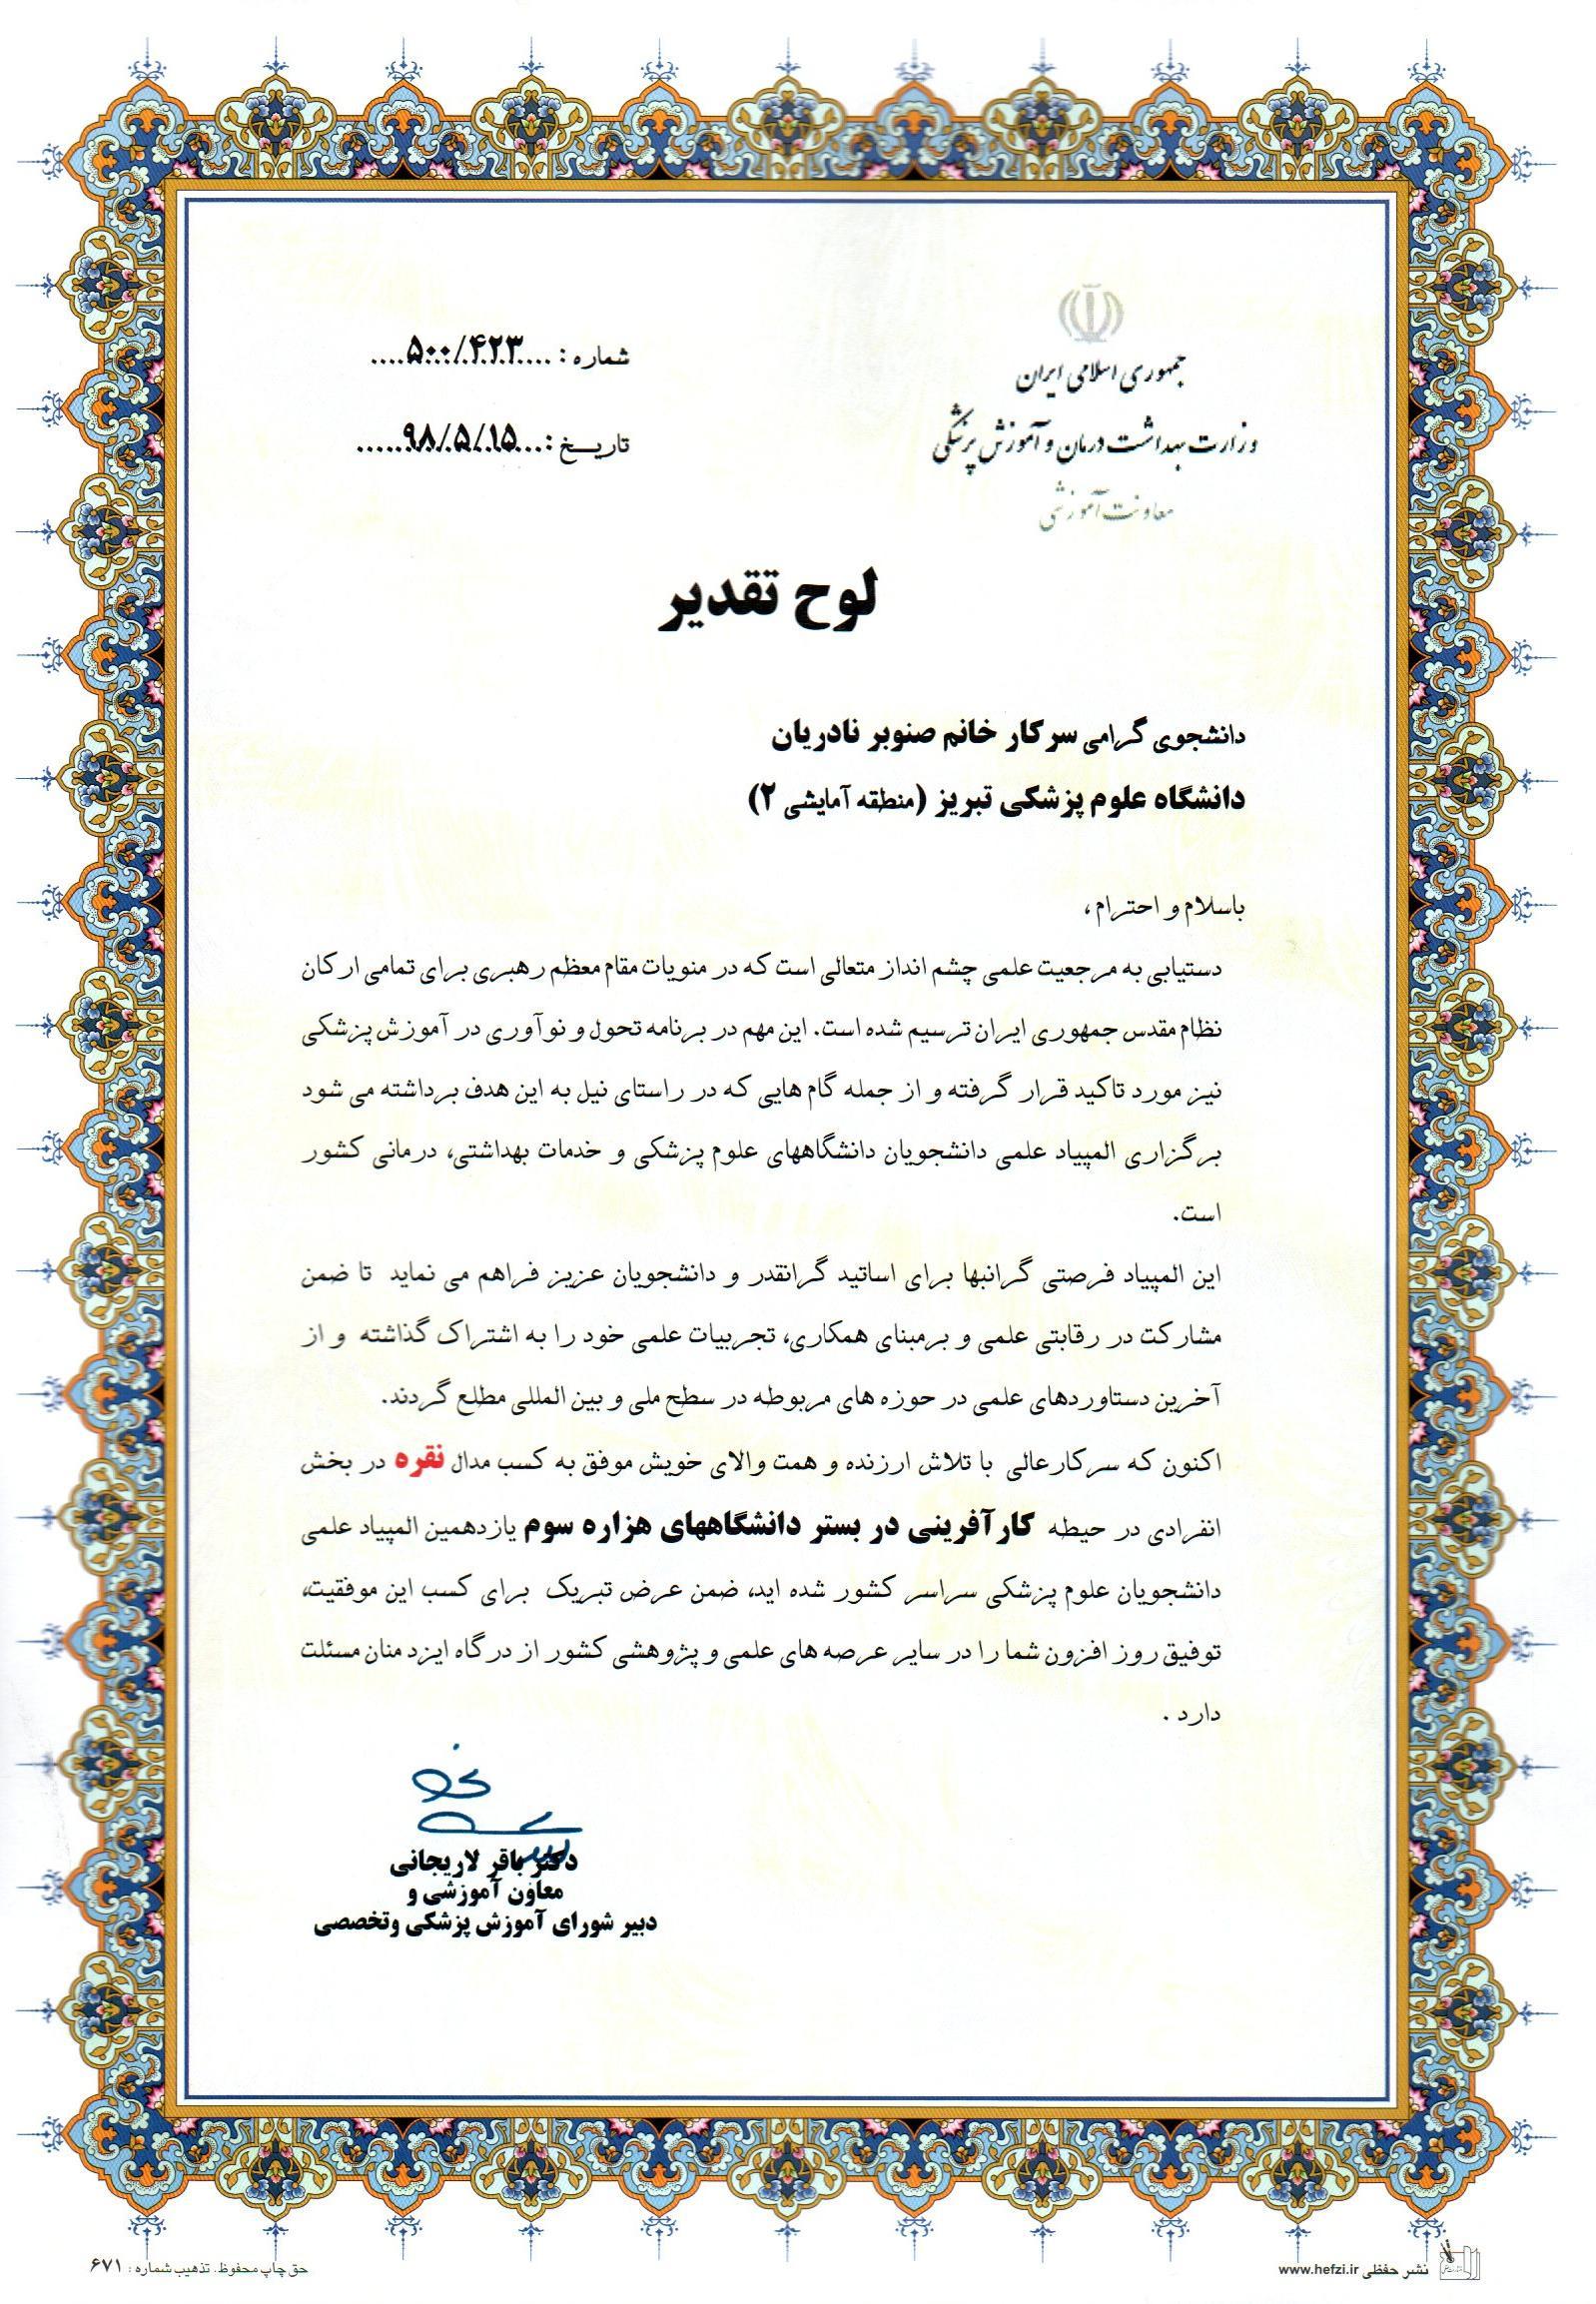 جمهوری اسلامی ایران
وزارت بهداشت درمان و آموزش پزشکی
معاونت آموزشی
شماره : ....۵۰۰/۴۲۳....
تاریخ :....۹۸/۵/۱۵....
لوح تقدیر
دانشجوی گرامی سرکار خانم صنوبر نادریان
دانشگاه علوم پزشکی تبریز (منطقه آمایشی ۲)
باسلام و احترام،
دستیابی به مرجعیت علمی چشم انداز متعالی است که در منویات مقام معظم رهبری برای تمامی ارکان
نظام مقدس جمهوری ایران ترسیم شده است. این مهم در برنامه تحول و نوآوری در آموزش پزشکی
نیز مورد تاکید قرار گرفته و از جمله گام هایی که در راستای نیل به این هدف برداشته می شود
برگزاری المپیاد علمی دانشجویان دانشگاههای علوم پزشکی و خدمات بهداشتی، درمانی کشور
است.
این المپیاد فرصتی گرانبها برای اساتید گرانقدر و دانشجویان عزیز فراهم می نماید تا ضمن
مشارکت در رقابتی علمی و برمبنای همکاری، تجربیات علمی خود را به اشتراک گذاشته و از
آخرین دستاوردهای علمی در حوزه های مربوطه در سطح ملی و بین المللی مطلع گردند.
اکنون که سرکارعالی با تلاش ارزنده و همت والای خویش موفق به کسب مدال نقره در بخش
انفرادی در حیطه کارآفرینی در بستر دانشگاههای هزاره سوم یازدهمین المپیاد علمی
دانشجویان علوم پزشکی سراسر کشور شده اید، ضمن عرض تبریک برای کسب این موفقیت،
توفیق روز افزون شما را در سایر عرصه های علمی و پژوهشی کشور از درگاه ایزد منان مسئلت
دارد .
دکتر باقر لاریجانی
معاون آموزشی و
دبیر شورای آموزش پزشکی وتخصصی
نشر حفظی www.hefzi.ir
حق چاپ محفوظ. تذهیب شماره : ۶۷۱